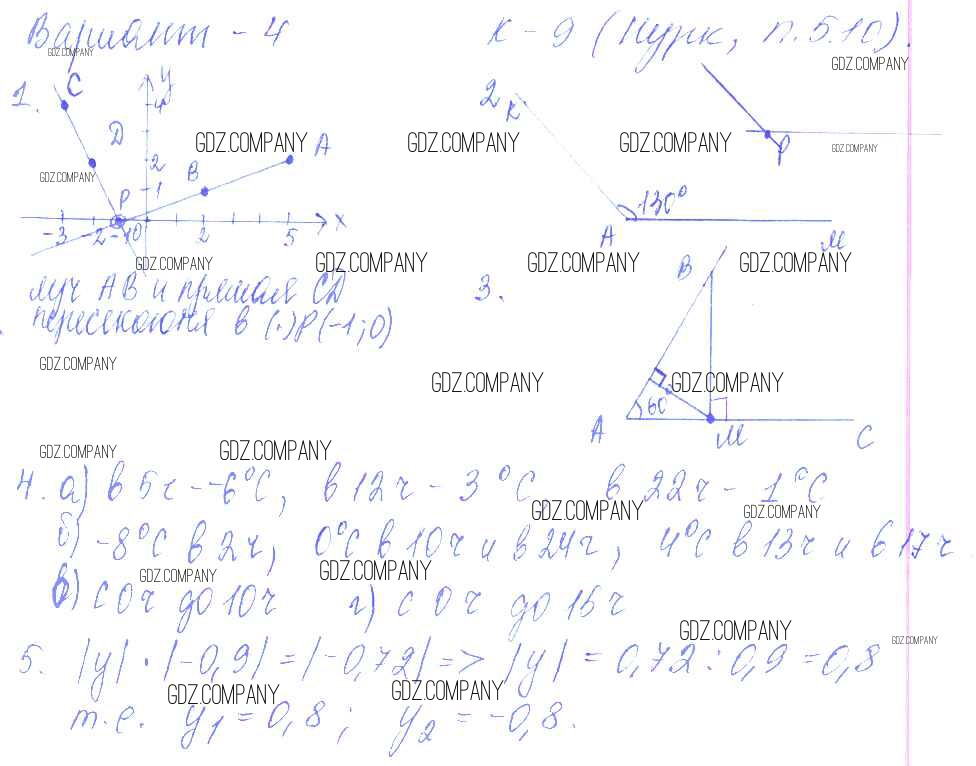 Вариант - 4   К - 9 (Нурк, п. 5.10).
GDZ.COMPANY
GDZ.COMPANY
1.
C
y
4
D
2
B
A
1
P
-3 -2 -1 0 2 5 x
GDZ.COMPANY
GDZ.COMPANY
2
K
130°
A
M
P
GDZ.COMPANY
GDZ.COMPANY
GDZ.COMPANY
GDZ.COMPANY
GDZ.COMPANY
GDZ.COMPANY
GDZ.COMPANY
луч AB и прямая CD
пересекаются в (·)P(-1;0)
3.
B
60
A
M
C
GDZ.COMPANY
GDZ.COMPANY
GDZ.COMPANY
GDZ.COMPANY
GDZ.COMPANY
4. а) в 5 ч - -6°C, в 12 ч - 3°C в 22 ч - 1°C
GDZ.COMPANY
GDZ.COMPANY
б) -8°C в 2 ч, 0°C в 10 ч и в 24 ч, 4°C в 13 ч и в 17 ч
GDZ.COMPANY
GDZ.COMPANY
в) с 0 ч до 10 ч   г) с 0 ч до 15 ч
GDZ.COMPANY
GDZ.COMPANY
5. |y| · |-0,9| = |-0,72| => |y| = 0,72 : 0,9 = 0,8
GDZ.COMPANY
GDZ.COMPANY
т.е. y₁ = 0,8; y₂ = -0,8.